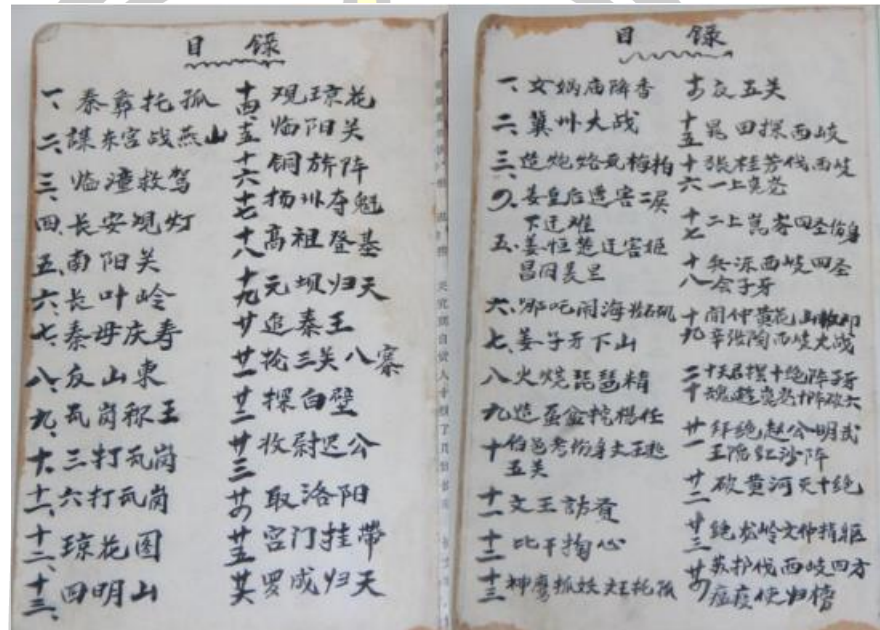 目 録
一、秦彝托孤
二、謀东宫战燕山
三、临潼救驾
四、长安观灯
五、南阳关
六、长叶岭
七、秦母庆寿
八、反山東
九、瓦岗称王
十、三打瓦岗
十一、六打瓦岗
十二、琼花图
十三、四明山
十四、观琼花
十五、临阳关
十六 铜旂阵
十七 扬州夺魁
十八 高祖登基
十九 元坝归天
廿 追秦王
廿一 抡三关八寨
廿二 探白壁
廿三 收尉迟公
廿四 取洛阳
廿五 宫门挂帶
廿六 罗成归天
目 録
一、女娲庙降香
二、冀州大战
三、造炮烙
四、姜皇后遭害二殿
下迁难
五、姜恒楚
昌囚羑里
六、哪吒闹海
七、姜子牙下山
八 火烧琵琶精
九 造虿盆挖楊任
十 伯邑考伤身文王赴
五关
十一 文王訪賢
十二 比干掏心
十三 神鹰抓妖文王托孤
十四 反五关
十五 晁田探西岐
十六 張桂芳伐西岐
一上崑崙
十七 二上崑崙四圣伤身
十八 兵沠西岐四圣
会子牙
十九 闻仲黄花山收邓
辛張陶西岐大战
二十 十天君摆十绝阵子牙
廿一 赵公明武
王陷红沙阵
廿二 破黄河灭十绝
廿三 绝龙岭文仲捐躯
廿四 苏护伐西岐四方
瘟疫使归榜